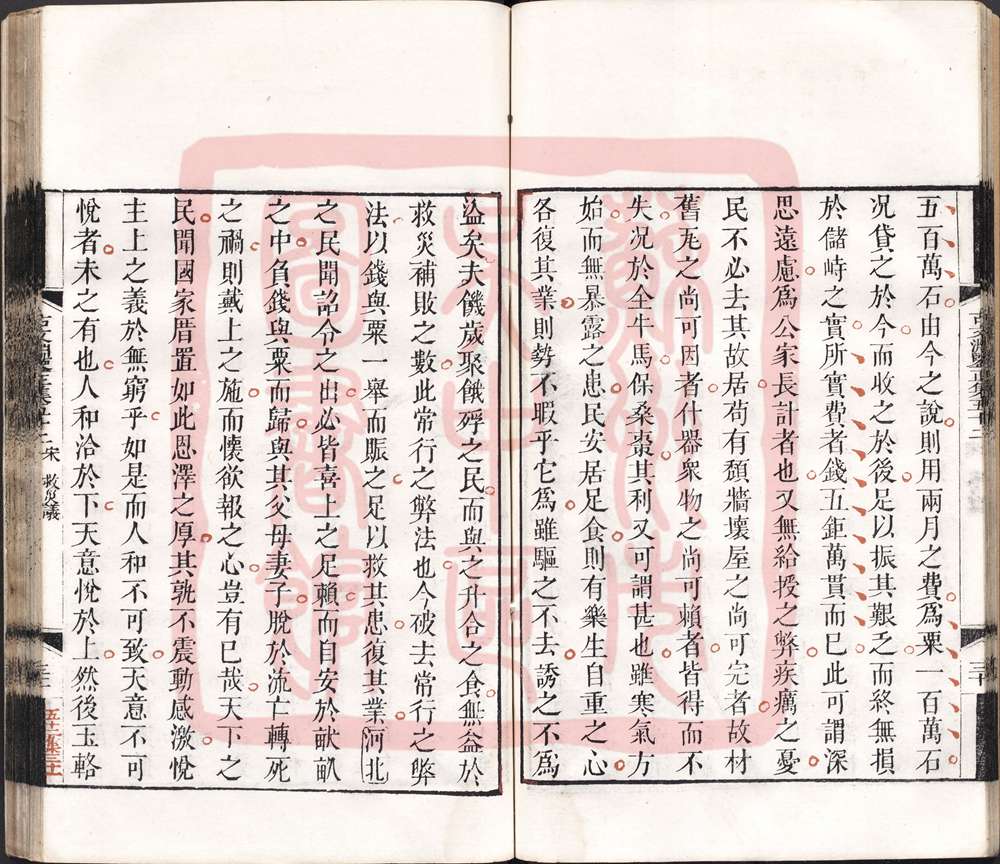 五百萬石由今之說則用兩月之費爲粟一百萬石
況貸之於今而收之於後足以振其艱乏而終無損
於儲峙之實所實費者錢五鉅萬貫而已此可謂深
思遠慮爲公家長計者也又無給授之弊疾癘之憂
民不必去其故居苟有頹牆壞屋之尚可完者故材
舊瓦之尚可因者什器衆物之尚可賴者皆得而不
失况於全牛馬保桑棗其利又可謂甚也雖寒氣方
始而無暴露之患民安居足食則有樂生自重之心
各復其業則勢不暇乎它爲雖驅之不去誘之不爲
盜矣夫饑歲聚餓殍之民而與之升合之食無益於
救災補敗之數此常行之弊法也今破去常行之弊
法以錢與粟一舉而賑之足以救其患復其業河北
之民聞詔令之出必皆喜上之足賴而自安於畎畝
之中負錢與粟而歸與其父母妻子脫於流亡轉死
之禍則戴上之施而懷欲報之心豈有已哉天下之
民聞國家厝置如此恩澤之厚其孰不震動感激悅
主上之義於無窮乎如是而人和不可致天意不可
悅者未之有也人和洽於下天意悅於上然後玉輅
宋 救災議